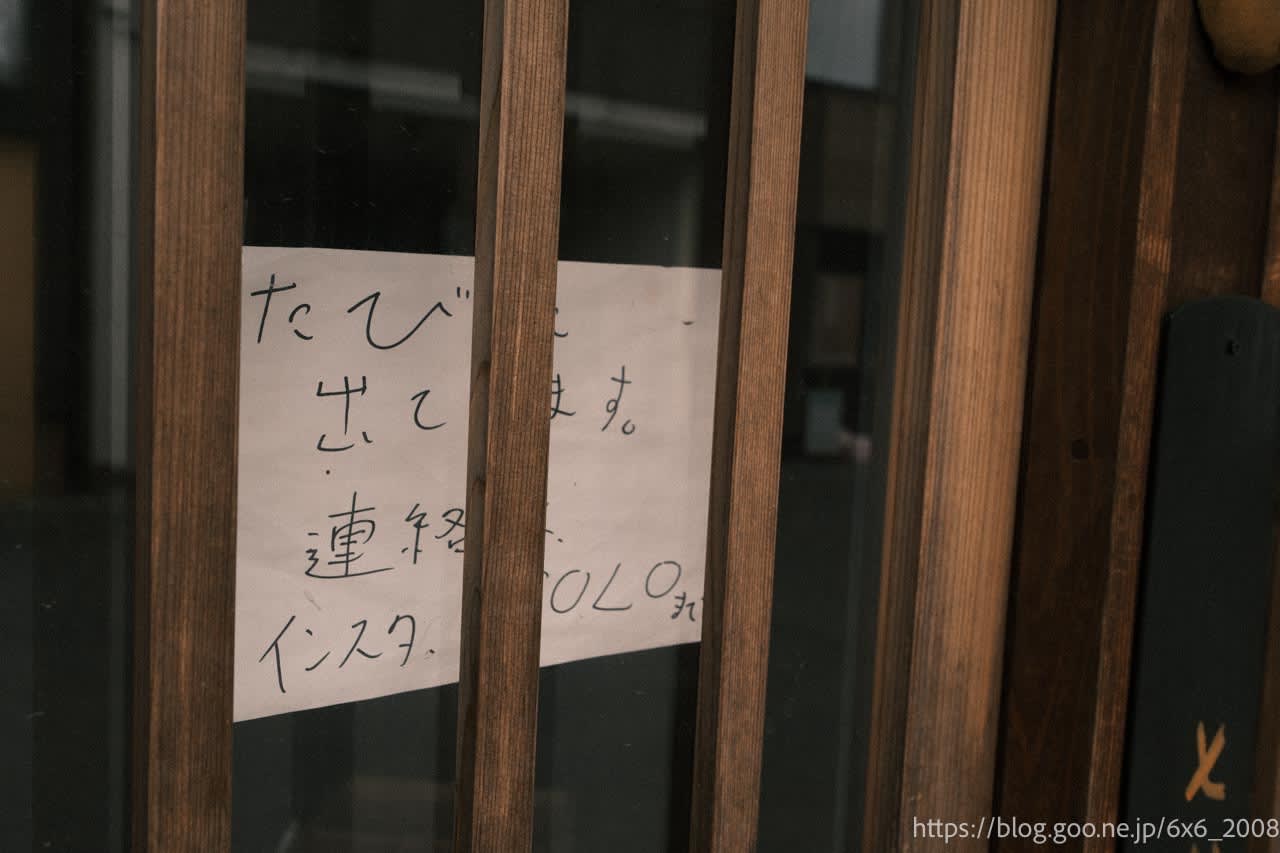 たびに
出てます。
連絡は
インスタ. OLOまで
https://blog.goo.ne.jp/6x6_2008